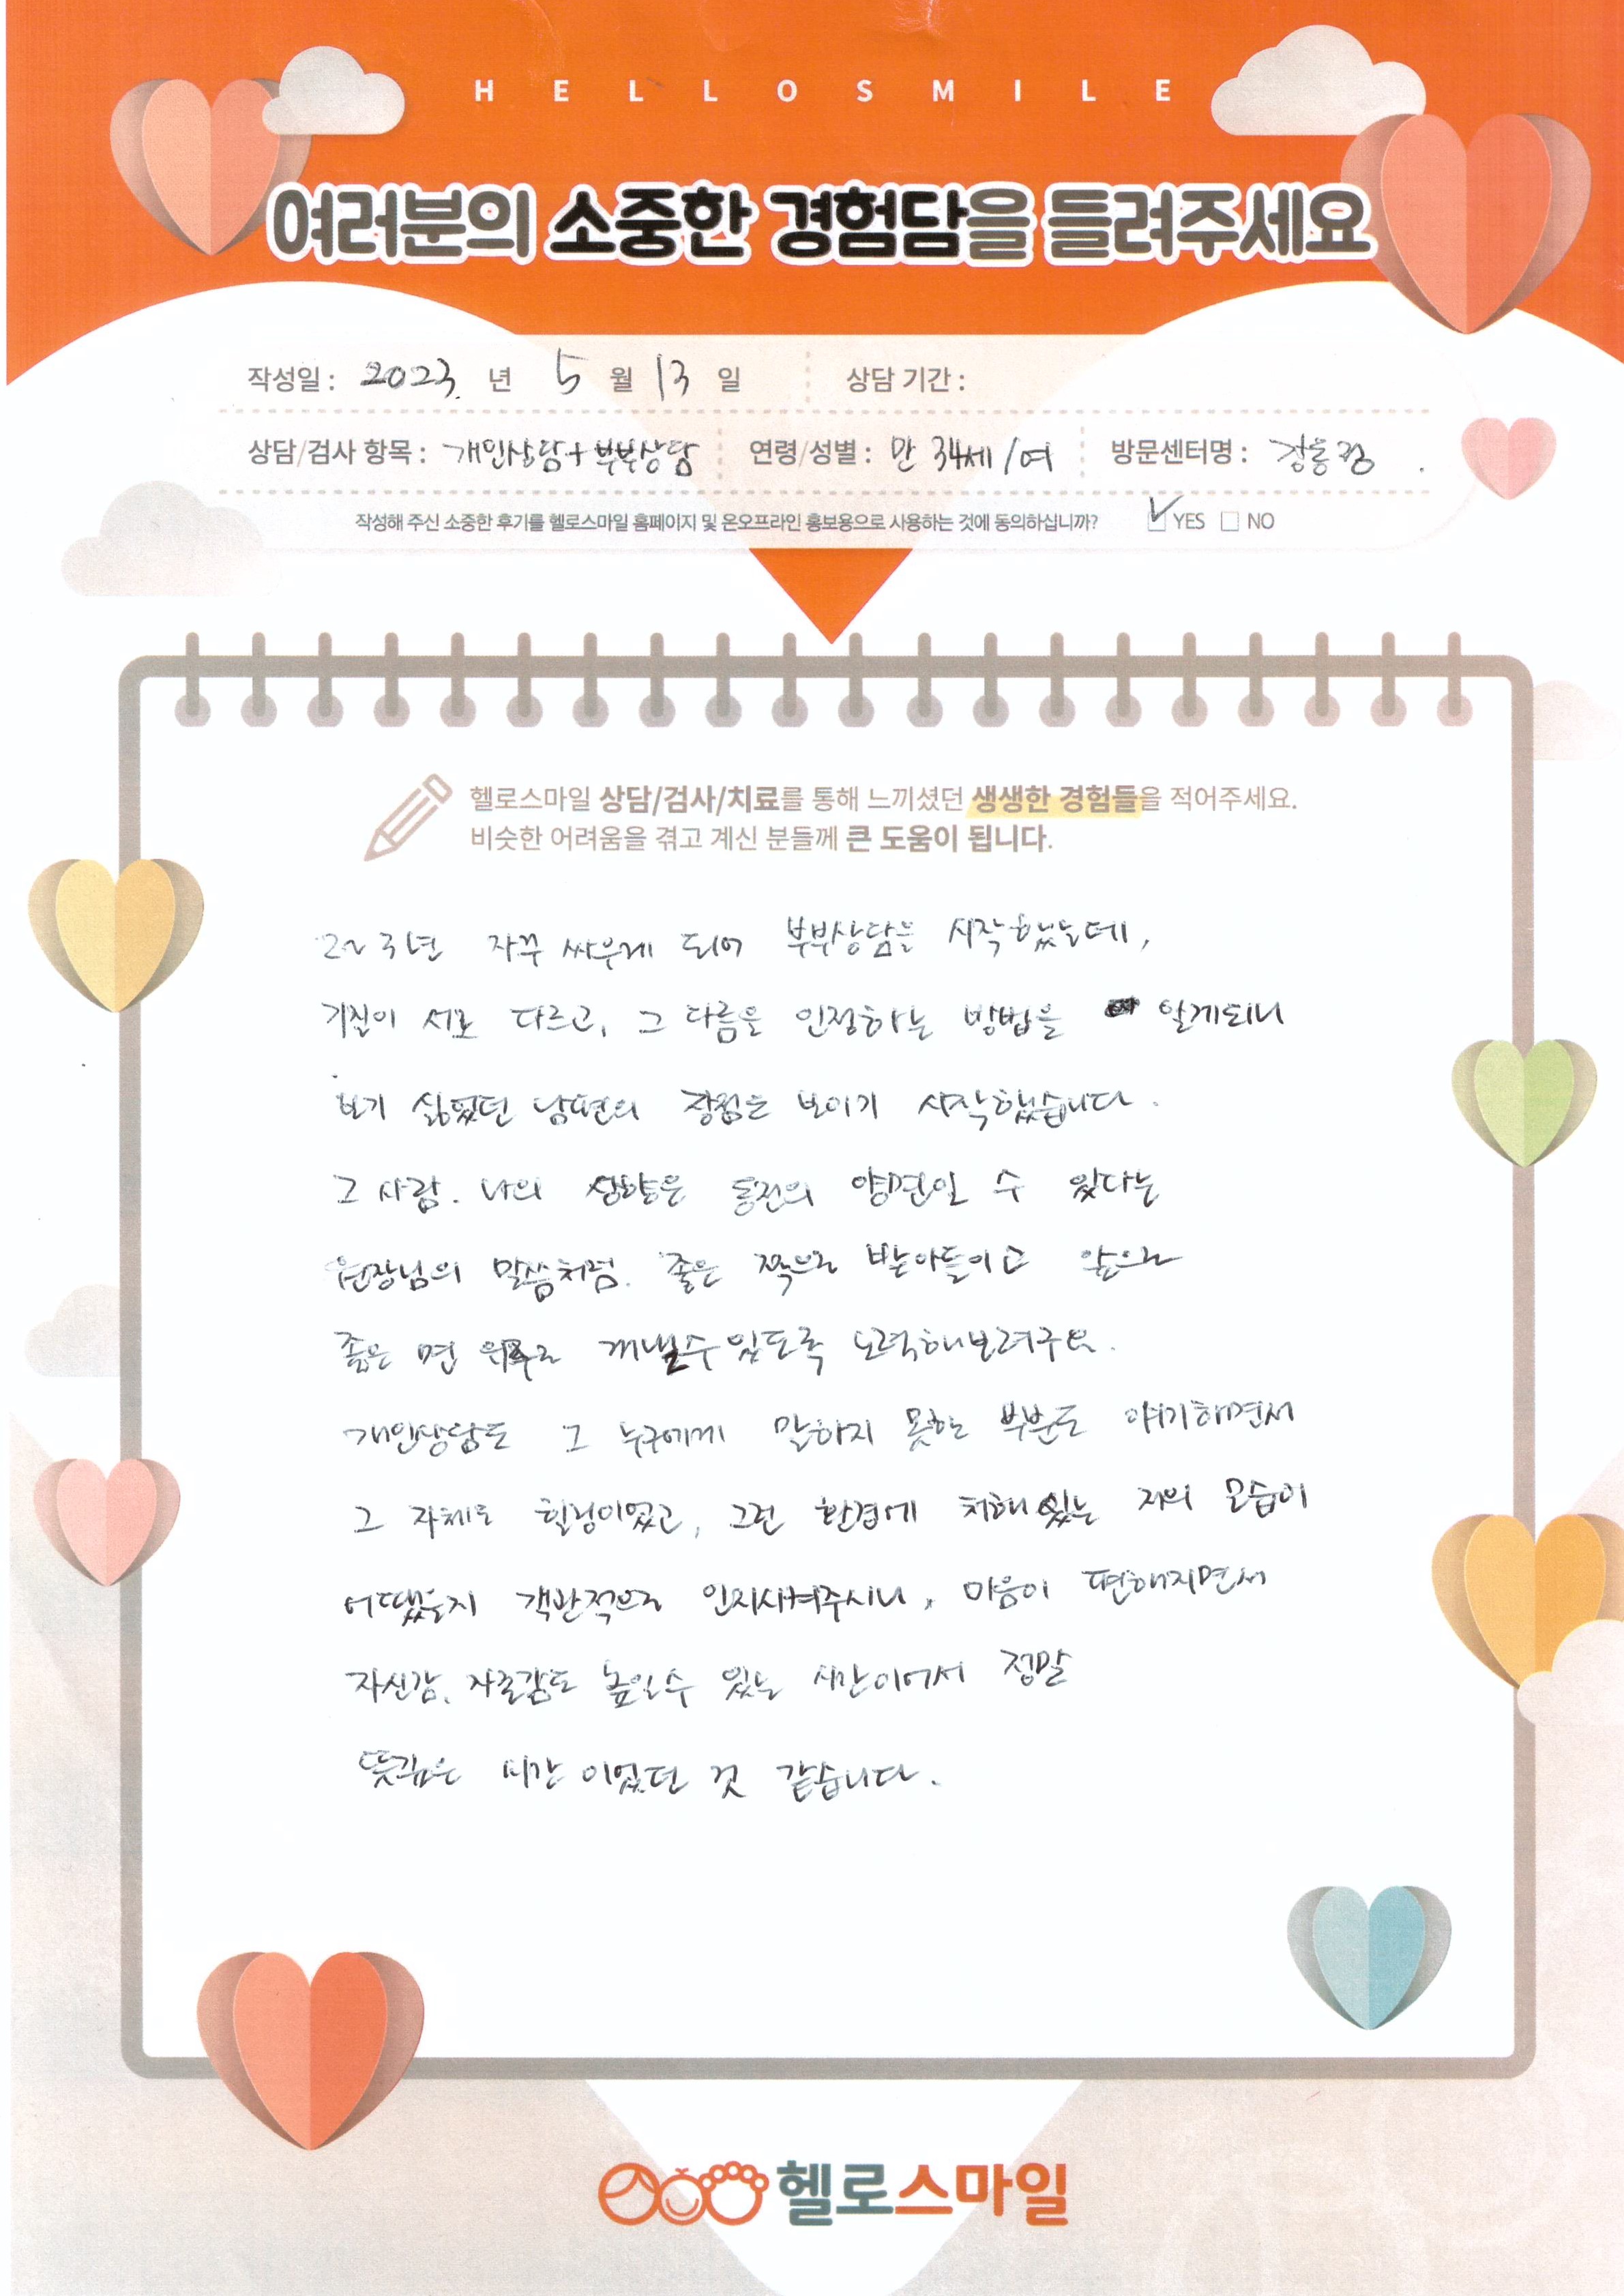 HELLOSMILE
여러분의 소중한 경험담을 들려주세요
작성일 : 2023. 년 5 월 13 일 상담 기간 :
상담/검사 항목 : 개인상담+부부상담 연령/성별 : 만 34세/여 방문센터명 :
작성해 주신 소중한 후기를 헬로스마일 홈페이지 및 온오프라인 홍보용으로 사용하는 것에 동의하십니까? YES NO
헬로스마일 상담/검사/치료를 통해 느끼셨던 생생한 경험들을 적어주세요.
비슷한 어려움을 겪고 계신 분들께 큰 도움이 됩니다.
2~3년 자꾸 싸우게 되어 부부상담을 시작했는데,
기질이 서로 다르고, 그 다름을 인정하는 방법을 알게되니
보기 싫었던 남편의 장점은 보이기 시작했습니다.
그 사람. 나의 성향은 동전의 양면일 수 있다는
원장님의 말씀처럼. 좋은 쪽으로 받아들이고 앞으로
좋은 면 위주로 꺼낼수있도록 노력해보려구요.
개인상담도 그 누구에게 말하지 못한 부분도 얘기하면서
그 자체로 힐링이었고, 그런 환경에 처해있는 저의 모습이
어땠을지 객관적으로 인지시켜주시니, 마음이 편해지면서
자신감, 자존감도 높일수 있는 시간이어서 정말
뜻깊은 시간이었던 것 같습니다.
헬로스마일